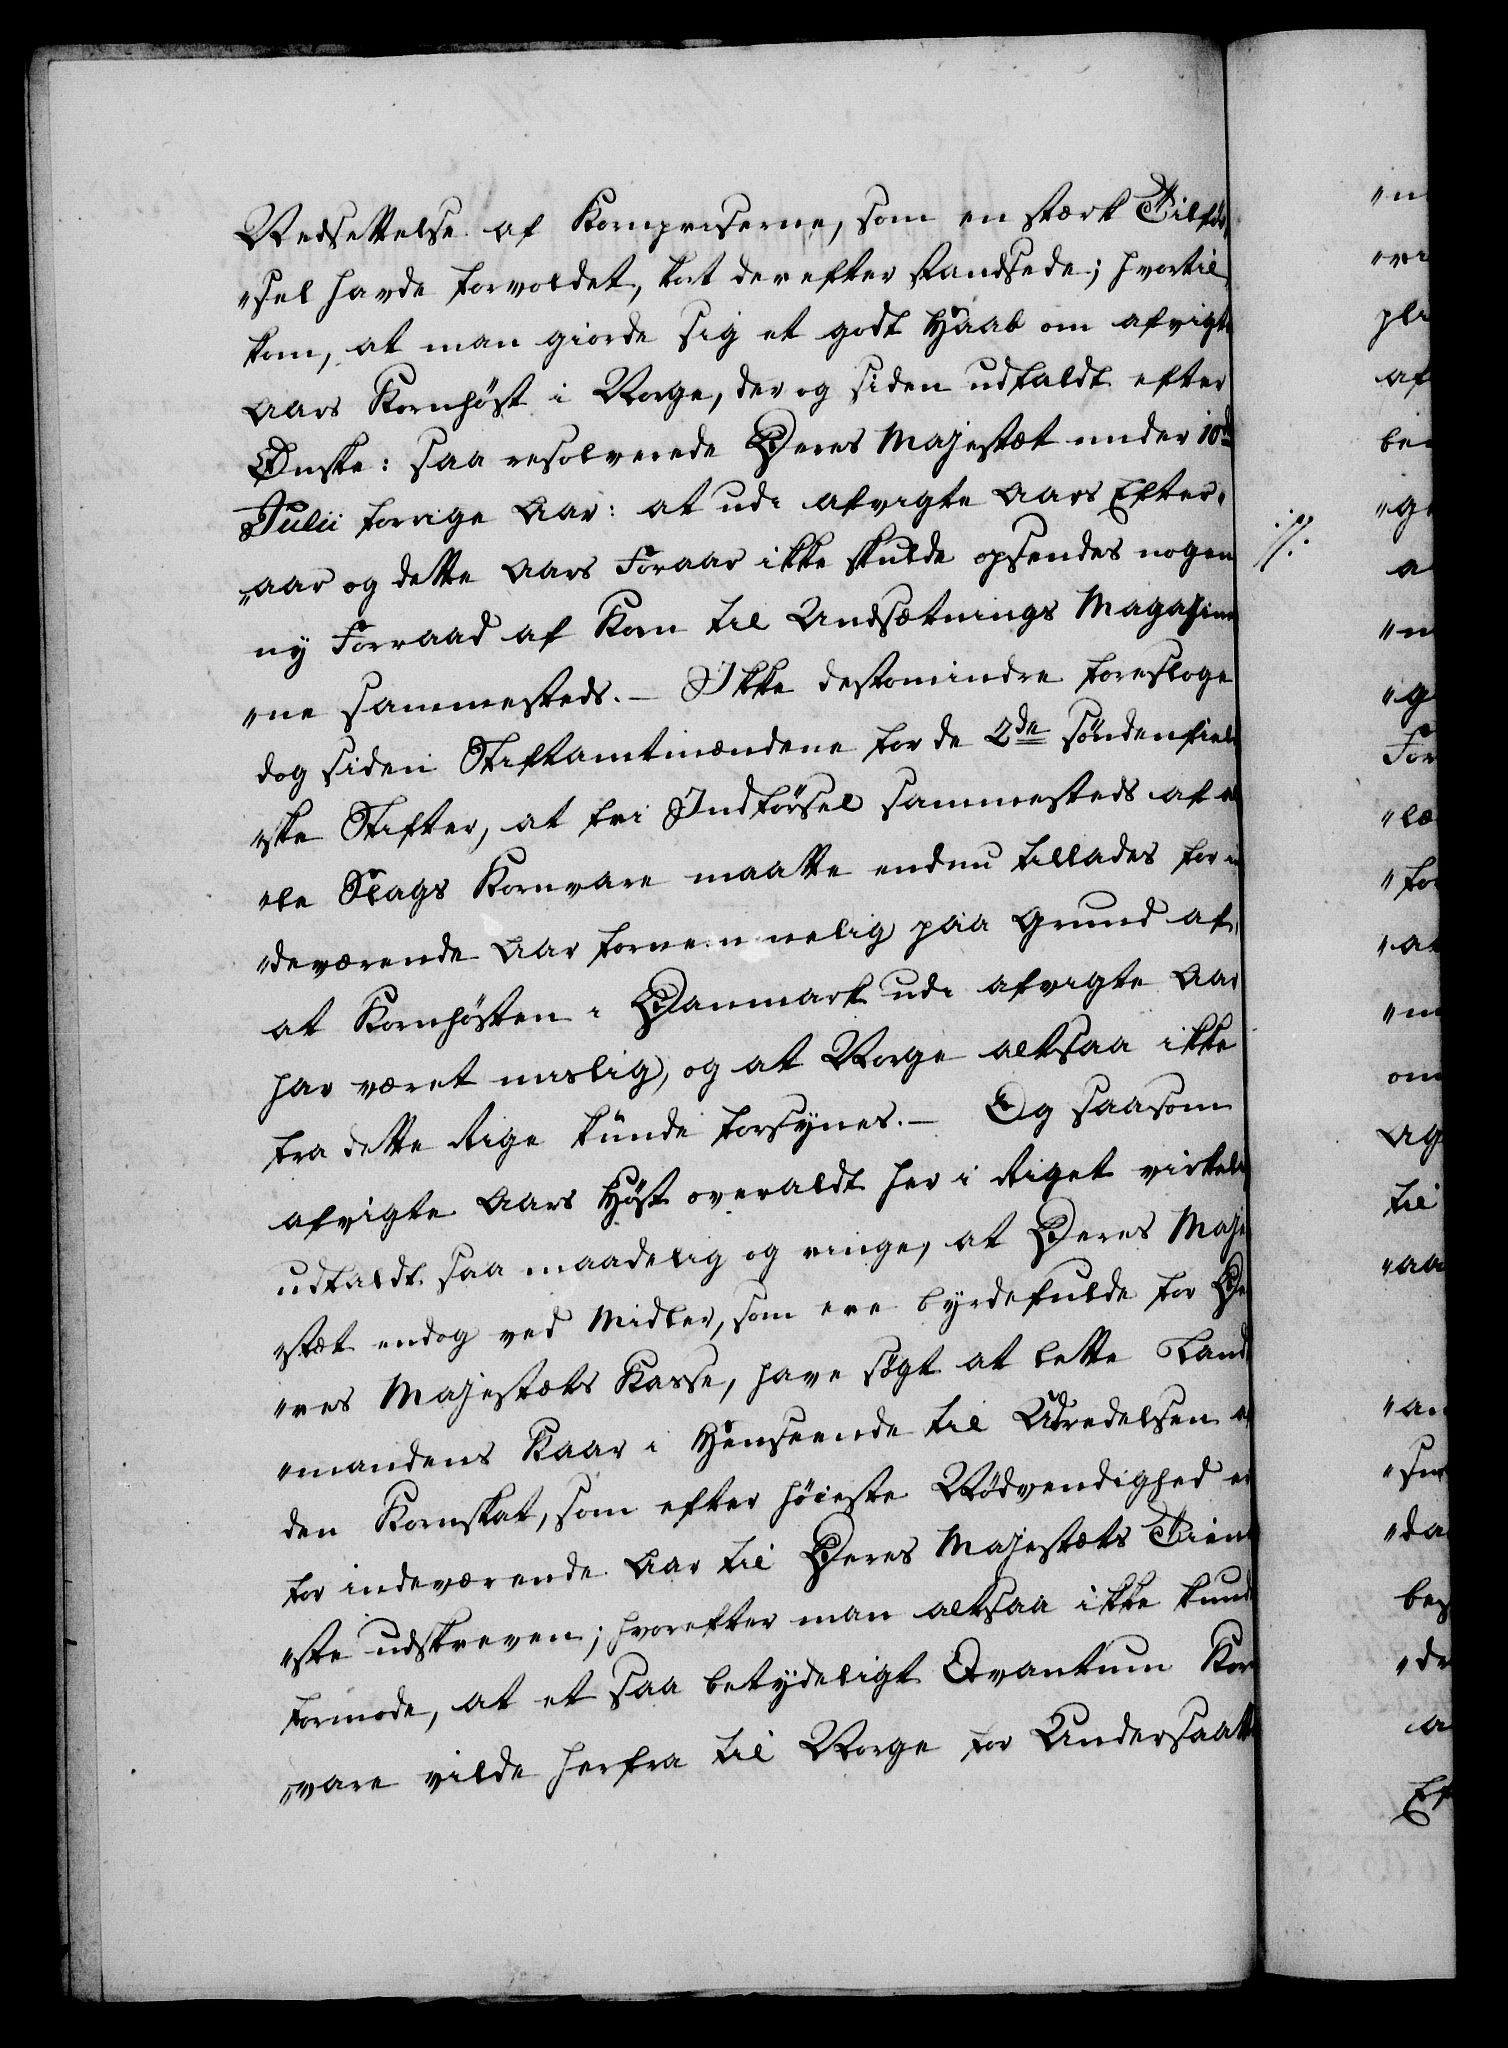 Nedsettelse af Kornpriserne, som en stærk Tilfør,
"sel havde forvoldet, kort derefter standsede; hvortil
kom, at man giorde sig et godt Haab om afvigte
Aars Kornhøst i Norge, der og siden udfaldt efter
Ønske: saa resolverede Deres Majestæt under 10de
Julii forrige Aar: at udi afvigte Aars Efter,
"aar og dette Aars Foraar ikke skulde opsendes nogen
ny Forraad af Korn til Undsætnings Magasine
"ne sammesteds. – Ikke destomindre foresloge
dog siden Stiftamtmændene for de 2de søndenfield
"ske Stifter, at fri Indførsel sammesteds af al
"le Slags Kornvare maatte endnu tillades for in
"deværende Aar fornemmelig paa Grund af,
at Kornhøsten i Danmark udi afvigte Aar
har været mislig, og at Norge altsaa ikke
fra dette Rige kunde forsynes. – Og saasom
afvigte Aars Høst overaldt her i Riget virkelig
udfaldt saa maadelig og ringe, at Deres Maje
"stæt endog ved Midler, som ere byrdefulde for De
"res Majestæts Kasse, have søgt at lette Land
"mandens Kaar i Henseende til Udredelsen af
den Kornskat, som efter høieste Nødvendighed er
for indeværende Aar til Deres Majestæts Tiene
"ste udskreven; hvorefter man altsaa ikke kunde
formode, at et saa betydeligt Qvantum Korn
"vare vilde herfra til Norge for Undersaatte